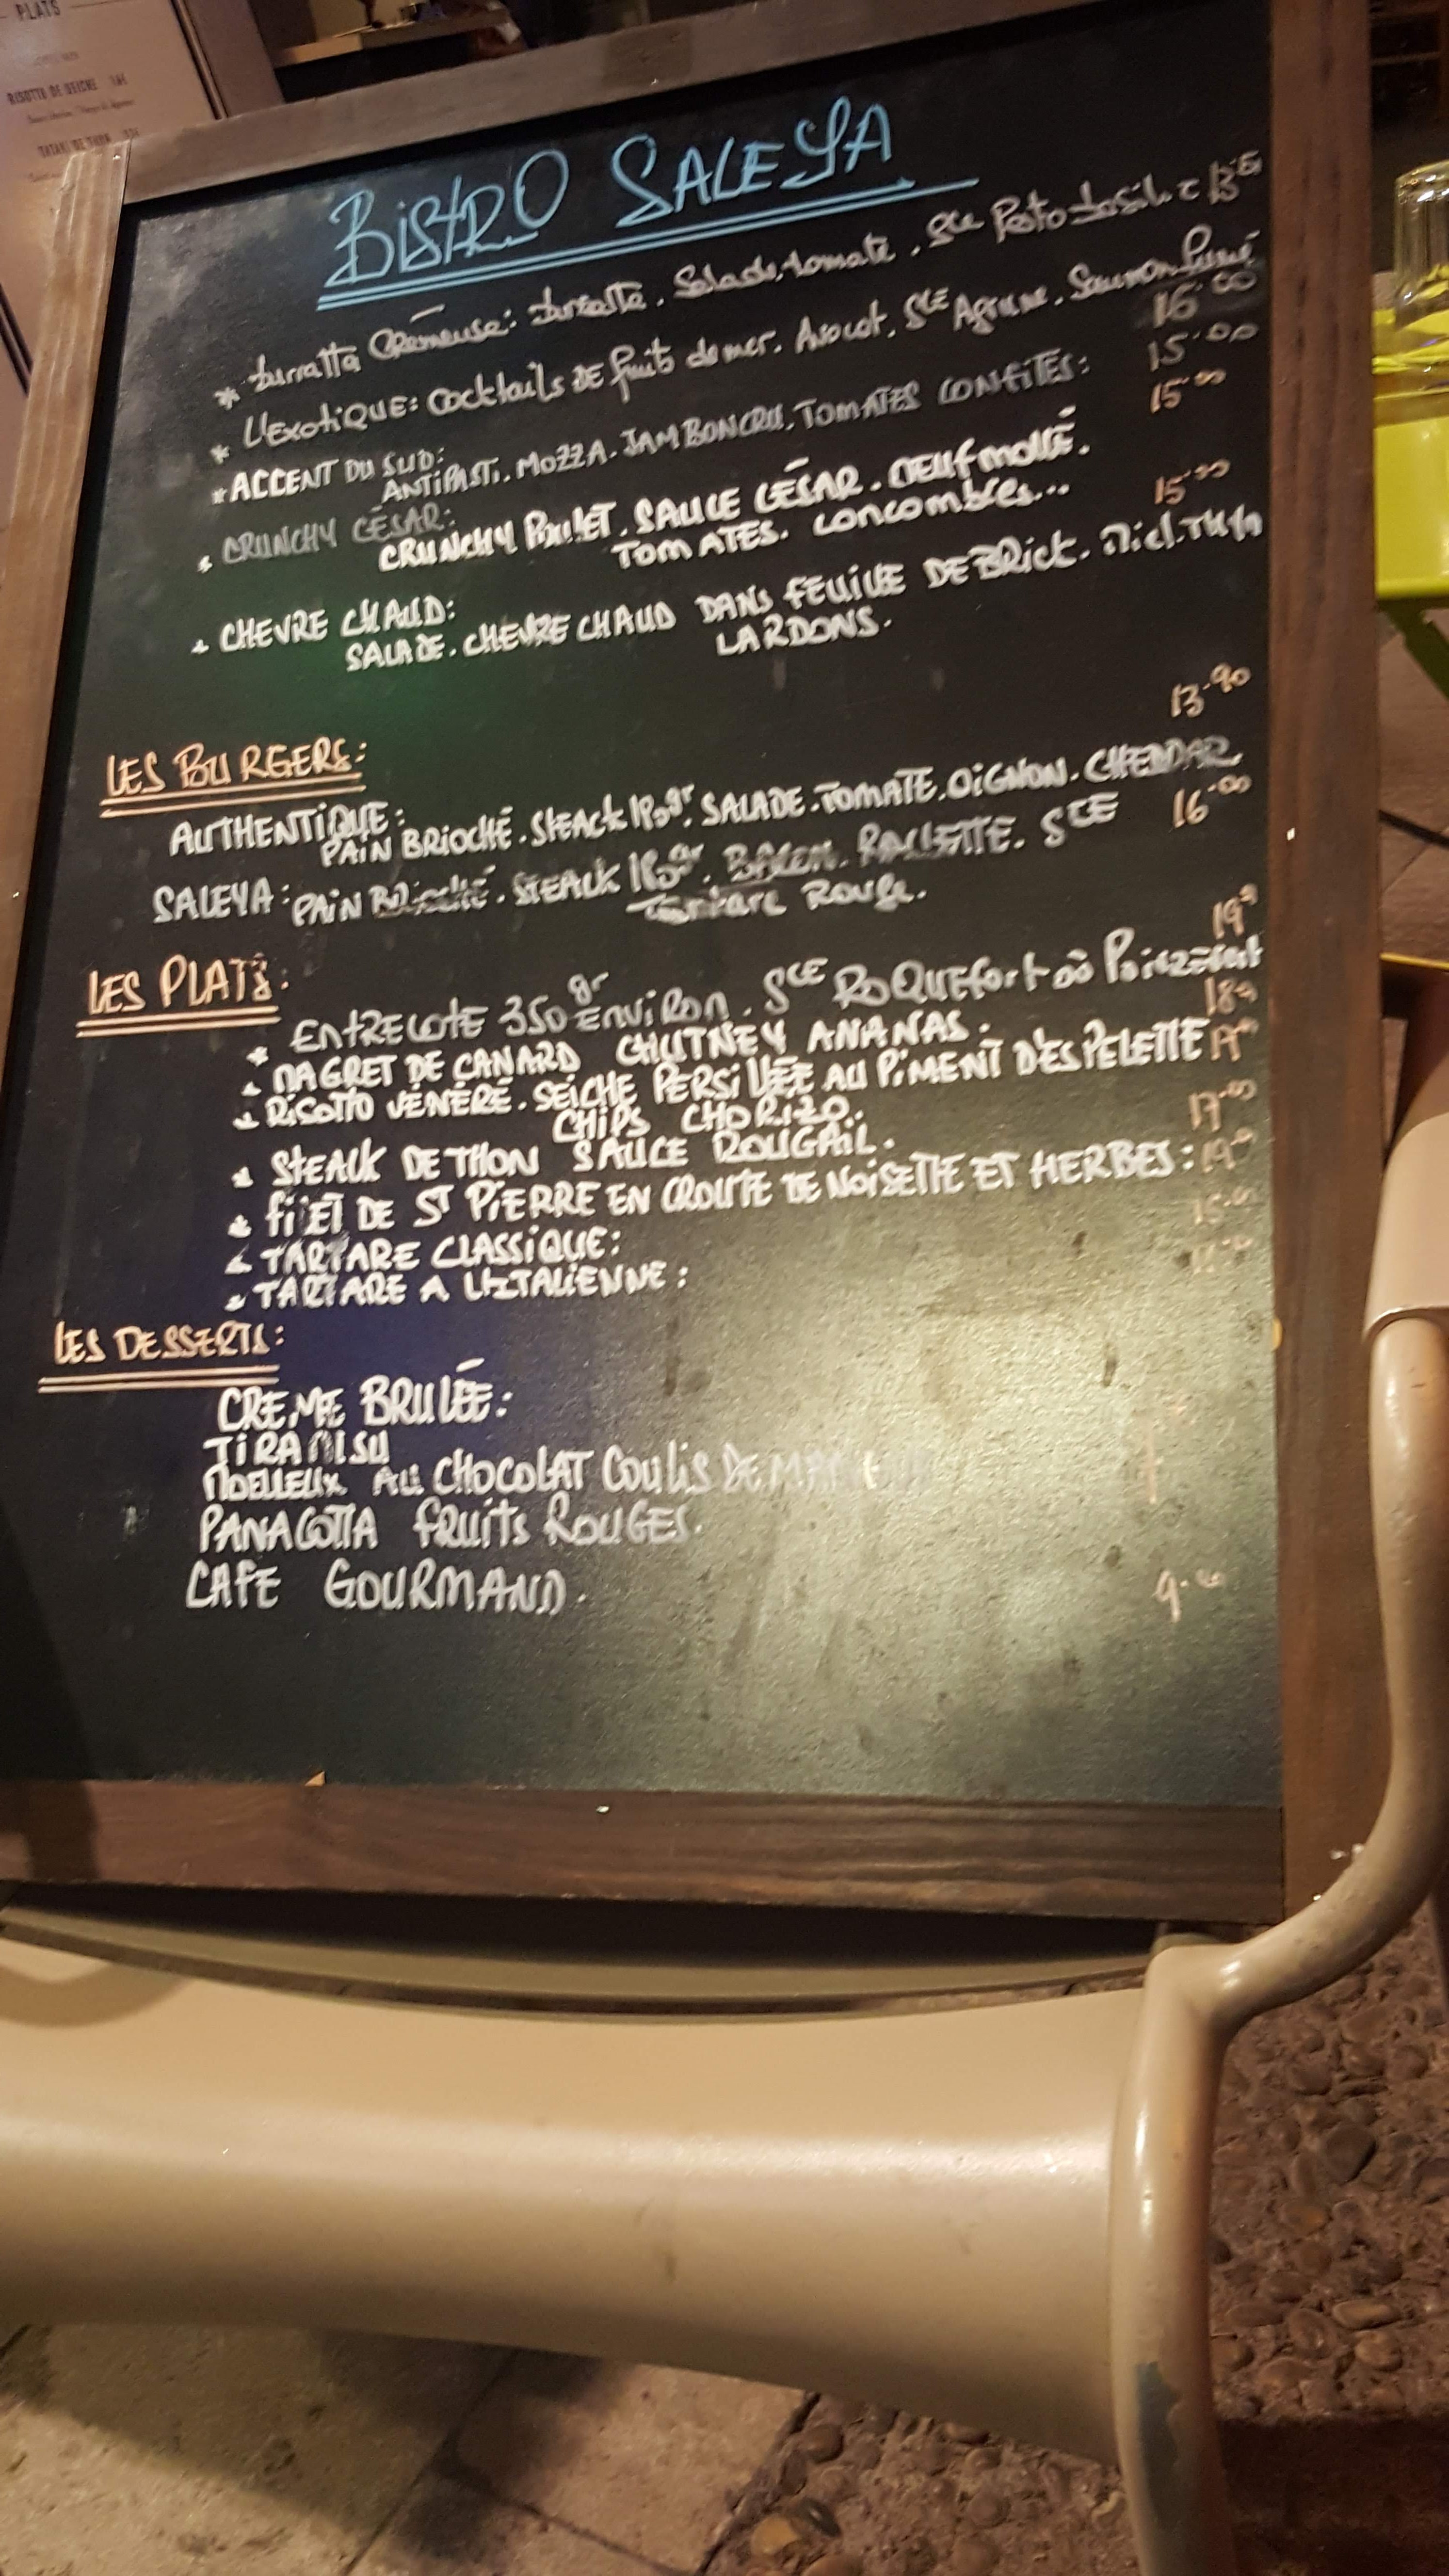 PLATS
RISOTTO DE SEICHE 16€
TATAKI DE THON
BISTRO SALEYA
* burratta Crémeuse: burratta. Salade. tomate. Sce Pesto basilic
* L'EXOTIQUE: Cocktails DE fruits de mer. Avocat. SCE Agrume. Saumon fumé
16.00
* ACCENT DU SUD: 15.00
ANTIPASTI. MOZZA. JAMBON CRU. TOMATES CONFITES:
CRUNCHY CÉSAR: 15.00
CRUNCHY POULET. SAUCE CÉSAR. OEUF MOLLÉ.
TOMATES. CONCOMBRES...
CHEVRE CHAUD: 15.00
SALADE. CHEVRE CHAUD DANS FEUILLE DE BRICK. Miel. THYM
LARDONS.
LES BURGERS: 13.90
AUTHENTIQUE:
PAIN BRIOCHÉ. STEACK 180gr. SALADE. TOMATE. OIGNON. CHEDDAR
SALEYA: PAIN BRIOCHÉ. STEACK 180gr. BACON. RACLETTE. SCE 16.00
Tartare Rouge.
LES PLATS:
* ENTRECOTE 350gr ENVIRON. SCE ROQUEFORT où
MAGRET DE CANARD CHUTNEY ANANAS.
RISOTTO VÉNÉRÉ. SEICHE PERSILLÉE AU PIMENT D'ESPELETTE
CHIPS CHORIZO.
STEACK DE THON SAUCE ROUGAIL. 17.00
FILET DE ST PIERRE EN CROUTE DE NOISETTE ET HERBES:
TARTARE CLASSIQUE:
TARTARE A L'ITALIENNE:
LES DESSERTS:
CREME BRULÉE:
TIRAMISU
MOELLEUX AU CHOCOLAT COULIS DE
PANACOTTA FRUITS ROUGES.
CAFE GOURMAND.